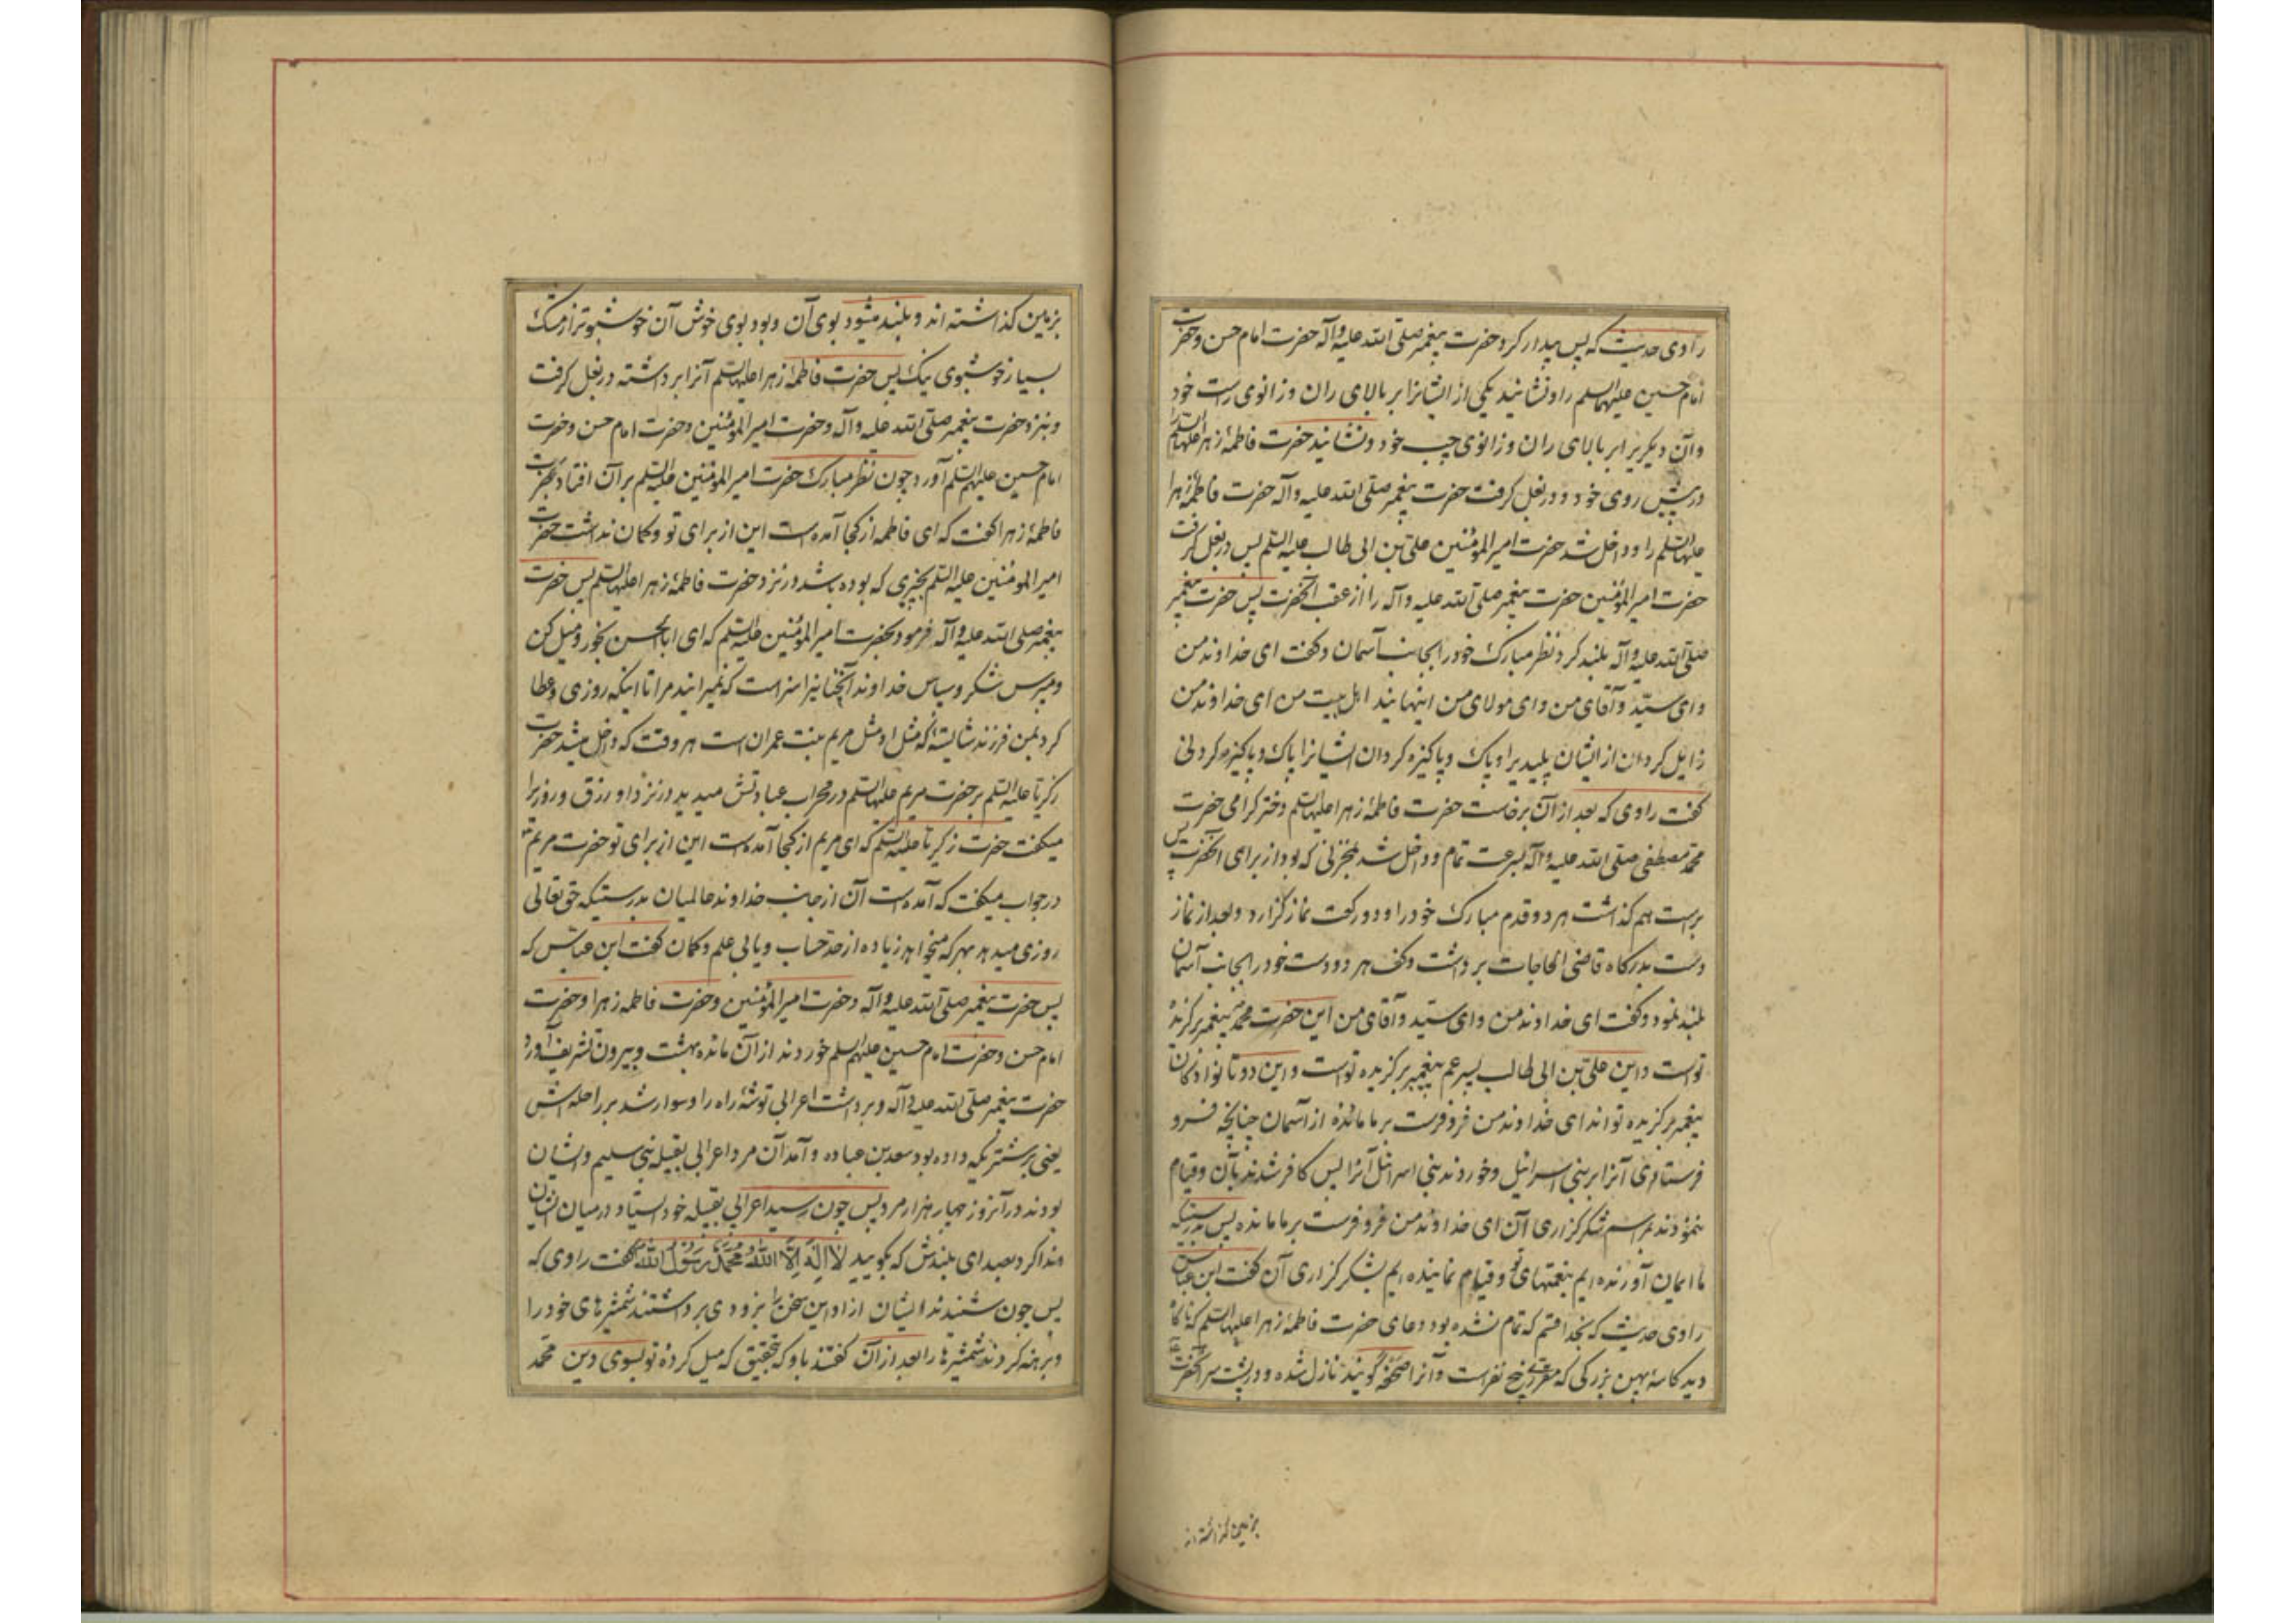 راوی حدیث که پس بیدار کرد حضرت پیغمبر صلی الله علیه وآله حضرت امام حسن وحضرت
امام حسین علیهما السلم را ونشانید یکی از ایشانرا بر بالای ران وزانوی راست خود
وآن دیگریرا بر بالای ران وزانوی چپ خود ونشانید حضرت فاطمهٔ زهرا علیها السلم را
در پیش روی خود و در بغل گرفت حضرت پیغمبر صلی الله علیه وآله حضرت فاطمهٔ زهرا
علیها السلم را وداخل شد حضرت امیر المؤمنین علی بن ابی طالب علیه السلم پس در بغل گرفت
حضرت امیر المؤمنین حضرت پیغمبر صلی الله علیه وآله را از عقب آنحضرت پس حضرت پیغمبر
صلی الله علیه وآله بلند کرد نظر مبارک خود را بجانب آسمان وگفت ای خداوند من
وای سید وآقای من وای مولای من اینهایند اهل بیت من ای خداوند من
زایل گردان از ایشان پلیدیرا وپاک وپاکیزه گردان ایشانرا پاک وپاکیزه کردنی
گفت راوی که بعد از آن برخاست حضرت فاطمهٔ زهرا علیها السلم دختر گرامی حضرت
محمد مصطفی صلی الله علیه وآله بسرعت تمام وداخل شد بمخزنی که بود از برای آنحضرت پس
براست هم گذاشت هر دو قدم مبارک خود را ودو رکعت نماز گزارد وبعد از نماز
دست بدرگاه قاضی الحاجات برداشت وکف هر دو دست خود را بجانب آسمان
بلند نمود وگفت ای خداوند من وای سید وآقای من این حضرت محمد پیغمبر برگزیدهٔ
تواست واین علی بن ابی طالب پسر عم پیغمبر برگزیده تواست واین دو تا نوادگان
پیغمبر برگزیده تواند ای خداوند من فرو فرست بر ما مائدهٔ از آسمان چنانچه فرو
فرستادی آنرا بر بنی اسرائیل وخوردند بنی اسرائیل آنرا پس کافر شدند بآن وقیام
ننمودند بمراسم شکرگزاری آن ای خداوند من فرو فرست بر ما مائده پس بدرستیکه
ما ایمان آورنده ایم بنعمتهای تو وقیام نماینده ایم بشکرگزاری آن گفت ابن عباس
راوی حدیث که بخدا قسم که تمام نشده بود دعای حضرت فاطمهٔ زهرا علیها السلم که ناگاه
دید کاسهٔ پهن بزرگی که پنج نفر است وآنرا صحفه گویند نازل شده ودر پشت سر آنحضرت
بزمین گذاشته اند
بزمین گذاشته اند وبلند میشود بوی آن وبود بوی خوش آن خوشبوتر از مشک
بسیار خوشبوی نیک پس حضرت فاطمهٔ زهرا علیها السلم آنرا برداشته در بغل گرفت
وبنزد حضرت پیغمبر صلی الله علیه وآله وحضرت امیر المؤمنین وحضرت امام حسن وحضرت
امام حسین علیهم السلم آورد چون نظر مبارک حضرت امیر المؤمنین علیه السلم بر آن افتاد بحضرت
فاطمهٔ زهرا گفت که ای فاطمه از کجا آمده است این از برای تو وگمان نداشت حضرت
امیر المؤمنین علیه السلم بچیزی که بوده باشد در نزد حضرت فاطمهٔ زهرا علیها السلم پس حضرت
پیغمبر صلی الله علیه وآله فرمود بحضرت امیر المؤمنین علیه السلم که ای ابا الحسن بخور ومیل کن
ومپرس شکر وسپاس خداوند را سزاست که نمیرانید مرا تا اینکه روزی وعطا
کرد بمن فرزند شایستهٔ که مثل او مثل مریم بنت عمران است هر وقت که داخل میشد حضرت
زکریا علیه السلم بر حضرت مریم علیها السلم در محراب عبادتش میدید در نزد او رزق وروزیرا
میگفت حضرت زکریا علیه السلم که ای مریم از کجا آمده است این از برای تو حضرت مریم
در جواب میگفت که آمده است آن از جانب خداوند عالمیان بدرستیکه حق تعالی
روزی میدهد بهر که میخواهد زیاده از حد حساب وبیابی علم وگمان گفت ابن عباس که
پس حضرت پیغمبر صلی الله علیه وآله وحضرت امیر المؤمنین وحضرت فاطمه زهرا وحضرت
امام حسن وحضرت امام حسین علیهم السلم خوردند از آن مائده بهشت وبیرون تشریف آورد
حضرت پیغمبر صلی الله علیه وآله وبرداشت اعرابی توشهٔ راه را وسوار شد بر راحله اش
یعنی بر شتریکه داده بود سعد بن عباده وآمد آن مرد اعرابی بقبیله بنی سلیم وایشان
بودند در آنروز چهار هزار مرد پس چون رسید اعرابی بقبیله خود ایستاد در میان ایشان
وندا کرد بصدای بلندش که بگویید لا اله الا الله محمد رسول الله گفت راوی که
پس چون شنیدند ایشان از او این سخن را بزودی برداشتند شمشیرهای خود را
وبرهنه کردند شمشیرها را بعد از آن گفتند باو که بتحقیق که میل کردهٔ تو بسوی دین محمد